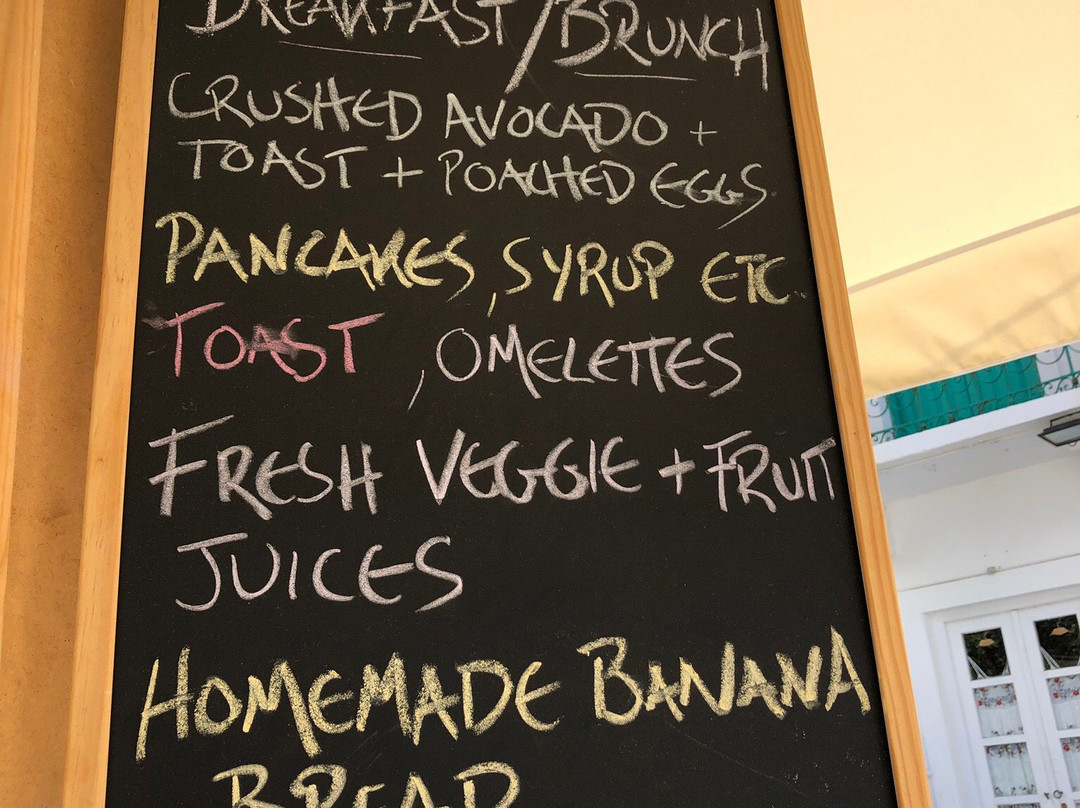 BREAKFAST/BRUNCH
CRUSHED AVOCADO +
TOAST + POACHED EGGS.
PANCAKES, SYRUP ETC.
TOAST, OMELETTES
FRESH VEGGIE + FRUIT
JUICES
HOMEMADE BANANA
BREAD